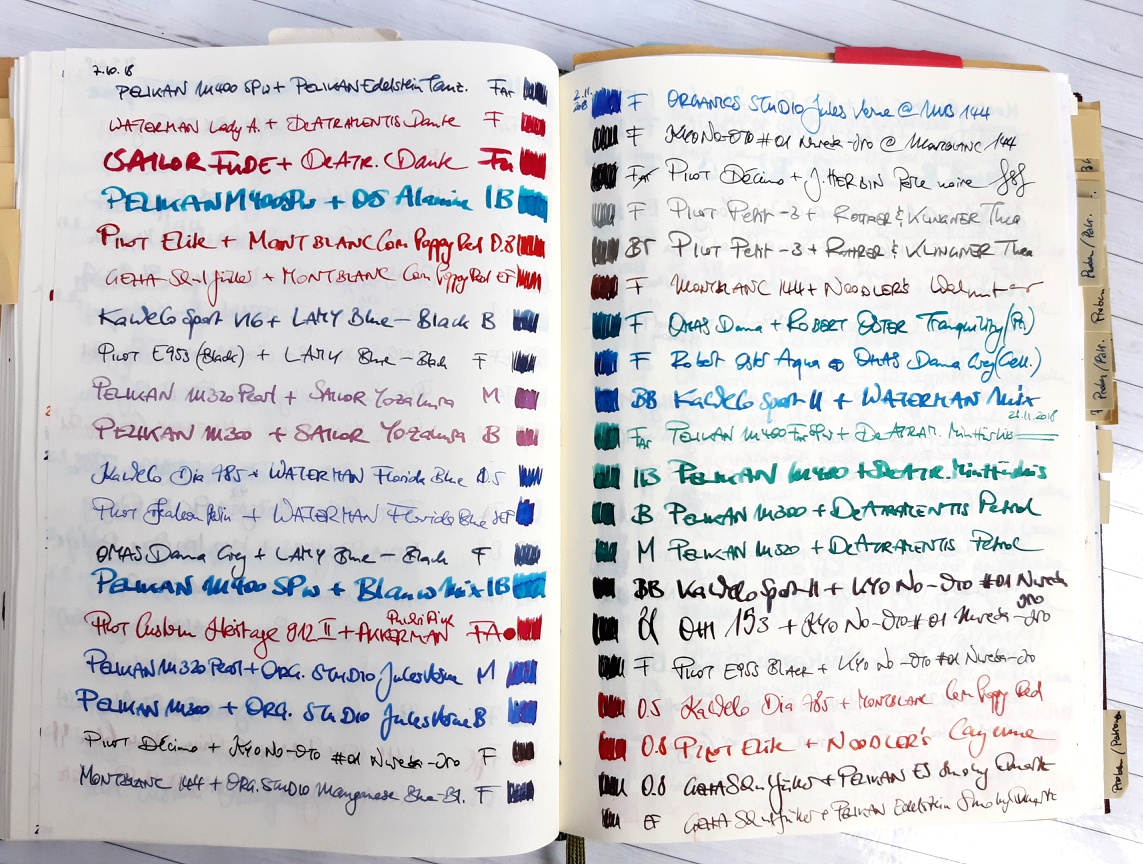 7.10.18
PELIKAN M400 SPw + PELIKAN Edelstein Tanz. Far
WATERMAN Lady A. + DEATRAMENTIS Dante F
SAILOR FUDE + DEATR. Dante Fu
PELIKAN M400SPw + DS IB
PILOT Elite + MONTBLANC Corn Poppy Red 0.8
GEHA Schulfüller + MONTBLANC Corn Poppy Red EF
KaWeCo Sport V16 + LAMY Blue-Black B
PILOT E95S (Black) + LAMY Blue-Black F
PELIKAN M320 Pearl + SAILOR Yozakura M
PELIKAN M300 + SAILOR Yozakura B
KaWeCo Dia 785 + WATERMAN Florida Blue 0.5
PILOT + WATERMAN Florida Blue
OMAS Dama Grey + LAMY Blue-Black F
PELIKAN M400 SPw + Blauw Mix IB
PILOT Custom Heritage 912 II + AKKERMAN FA
PELIKAN M320 Pearl + ORG. STUDIO Jules Verne M
PELIKAN M300 + ORG. STUDIO Jules Verne B
PILOT Décimo + KYO No-OTO #01 Nureba-iro F
MONTBLANC 144 + ORG. STUDIO Manganese Blue-Bl. F
2.11.
2018
F ORGANICS STUDIO Jules Verne @ MB 144
F KYO No-OTO #01 Nureba-iro @ MONTBLANC 144
PILOT Décimo + J. HERBIN Perle noire
F PILOT Petit-3 + ROHRER & KLINGNER Thea
BT PILOT Petit-3 + ROHRER & KLINGNER Thea
F MONTBLANC 144 + NOODLER'S Walnut
F OMAS Dama + ROBERT OSTER Tranquility
F Robert Oster Aqua OMAS Dama Grey (Cell.)
BB KaWeCo Sport II + WATERMAN Mix
21.11.2018
Far PELIKAN M400 Far SPw + DEATRAM. Minttürkis
IB PELIKAN M400 + DEATR. Minttürkis
B PELIKAN M300 + DEATRAMENTIS Petrol
M PELIKAN M320 + DEATRAMENTIS Petrol
BB KaWeCo Sport II + KYO No-OTO #01 Nureba
iro
153 + KYO No-OTO #01 Nureba-iro
F PILOT E95S Black + KYO No-OTO #01 Nureba-iro
0.5 KaWeCo Dia 785 + MONTBLANC Corn Poppy Red
0.8 PILOT Elite + NOODLER'S Cayenne
0.8 GEHA Schulfüller + PELIKAN ES Smoky Quartz
EF GEHA Schulfüller + PELIKAN Edelstein Smoky Quartz